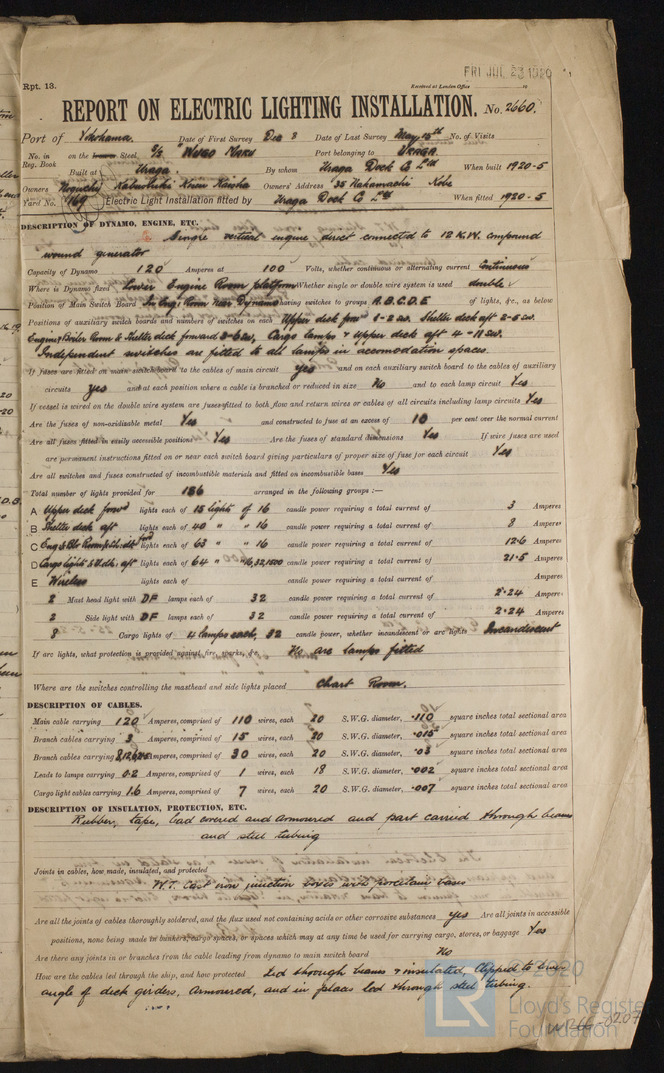 FRI JUL 23 1920
Rpt. 13.
Received at London Office
REPORT ON ELECTRIC LIGHTING INSTALLATION. No. 2660.
Port of Yokohama. Date of First Survey Dec 8 Date of Last Survey May 15th No. of Visits
No. in Reg. Book on the Iron or Steel S/S "Wugo Maru Port belonging to URAGA.
Built at Uraga. By whom Uraga Dock Co Ltd When built 1920-5
Owners Kabushiki Kaisha Owners' Address 35 Nakamachi Kobe
Yard No. 169 Electric Light Installation fitted by Uraga Dock Co Ltd When fitted 1920-5
DESCRIPTION OF DYNAMO, ENGINE, ETC.
Single vertical engine direct connected to 12 K.W. compound
wound generator
Capacity of Dynamo 120 Amperes at 100 Volts, whether continuous or alternating current Continuous
Where is Dynamo fixed Lower Engine Room platform Whether single or double wire system is used double
Position of Main Switch Board In Eng. Room near Dynamo having switches to groups A.B.C.D.E of lights, &c., as below
Positions of auxiliary switch boards and numbers of switches on each Upper deck fowd 1-2 sw. Shelter deck aft 2-6 sw.
Engine & Boiler Room & Shelter deck forward 3-6 sw, Cargo lamps & Upper deck aft 4-11 sw.
Independent switches are fitted to all lamps in accomodation spaces.
If fuses are fitted on main switch board to the cables of main circuit yes and on each auxiliary switch board to the cables of auxiliary
circuits yes and at each position where a cable is branched or reduced in size No and to each lamp circuit Yes
If vessel is wired on the double wire system are fuses fitted to both flow and return wires or cables of all circuits including lamp circuits Yes
Are the fuses of non-oxidizable metal Yes and constructed to fuse at an excess of 10 per cent over the normal current
Are all fuses fitted in easily accessible positions Yes Are the fuses of standard dimensions Yes If wire fuses are used
are permanent instructions fitted on or near each switch board giving particulars of proper size of fuse for each circuit Yes
Are all switches and fuses constructed of incombustible materials and fitted on incombustible bases Yes
Total number of lights provided for 186 arranged in the following groups :—
A Upper deck fowd lights each of 15 lights of 16 candle power requiring a total current of 3 Amperes
B Shelter deck aft lights each of 40 " " 16 candle power requiring a total current of 8 Amperes
C Eng & Blr Room & Sh. dk fwd lights each of 63 " " 16 candle power requiring a total current of 12.6 Amperes
D Cargo light & U.dk. aft lights each of 64 " 16,32,1500 candle power requiring a total current of 21.5 Amperes
E Wireless lights each of candle power requiring a total current of Amperes
2 Mast head light with DF lamps each of 32 candle power requiring a total current of 2.24 Amperes
2 Side light with DF lamps each of 32 candle power requiring a total current of 2.24 Amperes
8 Cargo lights of 4 lamps each, 32 candle power, whether incandescent or arc lights Incandescent
If arc lights, what protection is provided against fire, sparks, &c. No arc lamps fitted
Where are the switches controlling the masthead and side lights placed Chart Room.
DESCRIPTION OF CABLES.
Main cable carrying 120 Amperes, comprised of 110 wires, each 20 S.W.G. diameter, .110 square inches total sectional area
Branch cables carrying 3 Amperes, comprised of 15 wires, each 20 S.W.G. diameter, .015 square inches total sectional area
Branch cables carrying Amperes, comprised of 30 wires, each 20 S.W.G. diameter, .03 square inches total sectional area
Leads to lamps carrying 0.2 Amperes, comprised of 1 wires, each 18 S.W.G. diameter, .002 square inches total sectional area
Cargo light cables carrying 1.6 Amperes, comprised of 7 wires, each 20 S.W.G. diameter, .007 square inches total sectional area
DESCRIPTION OF INSULATION, PROTECTION, ETC.
Rubber, tape, lead covered and armoured and part carried through beams
and steel tubing
Joints in cables, how made, insulated, and protected
W.T. Cast iron junction boxes with porcelain bases
Are all the joints of cables thoroughly soldered, and the flux used not containing acids or other corrosive substances yes Are all joints in accessible
positions, none being made in bunkers, cargo spaces, or spaces which may at any time be used for carrying cargo, stores, or baggage Yes
Are there any joints in or branches from the cable leading from dynamo to main switch board No
How are the cables led through the ship, and how protected Led through beams & insulated, Clipped to lower
angle of deck girders, Armoured, and in places led through steel tubing.
© 2020
LR Lloyd's Register
Foundation
W266-0207